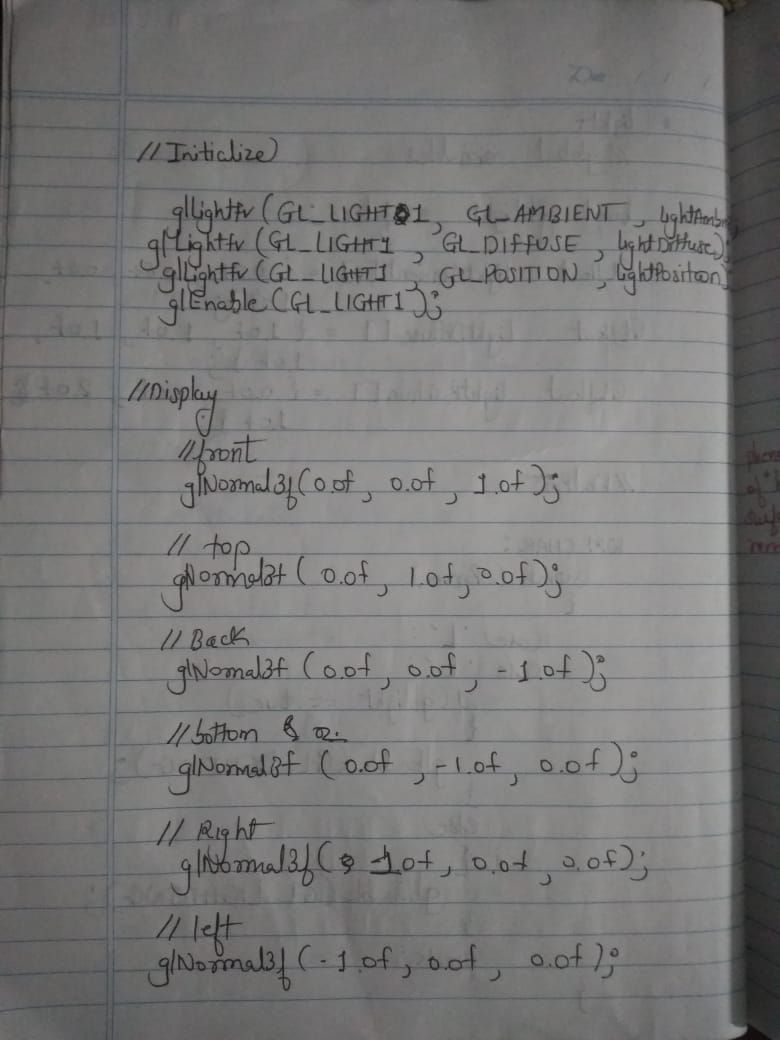 Date
// Initialize)
glLightfv (GL_LIGHT1, GL_AMBIENT, lightAmbi
glLightfv (GL_LIGHT1, GL_DIFFUSE, lightDiffuse);
glLightfv (GL_LIGHT1, GL_POSITION, lightPosition)
glEnable (GL_LIGHT1);
// Display
// front
glNormal3f(0.0f, 0.0f, 1.0f);
// top
glNormal3f (0.0f, 1.0f, 0.0f);
// Back
glNormal3f (0.0f, 0.0f, -1.0f);
// bottom
glNormal3f (0.0f, -1.0f, 0.0f);
// Right
glNormal3f( 1.0f, 0.0f, 0.0f);
// left
glNormal3f (-1.0f, 0.0f, 0.0f);